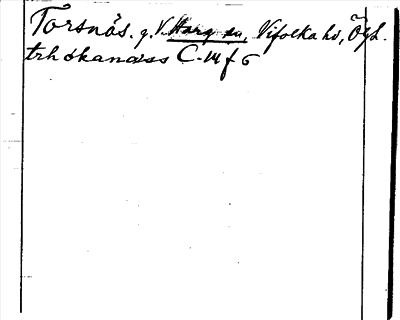 Torsnäs. g. V. Harg sn, Vifolka hd, Ögl.
trhskanæss C-14 f 6